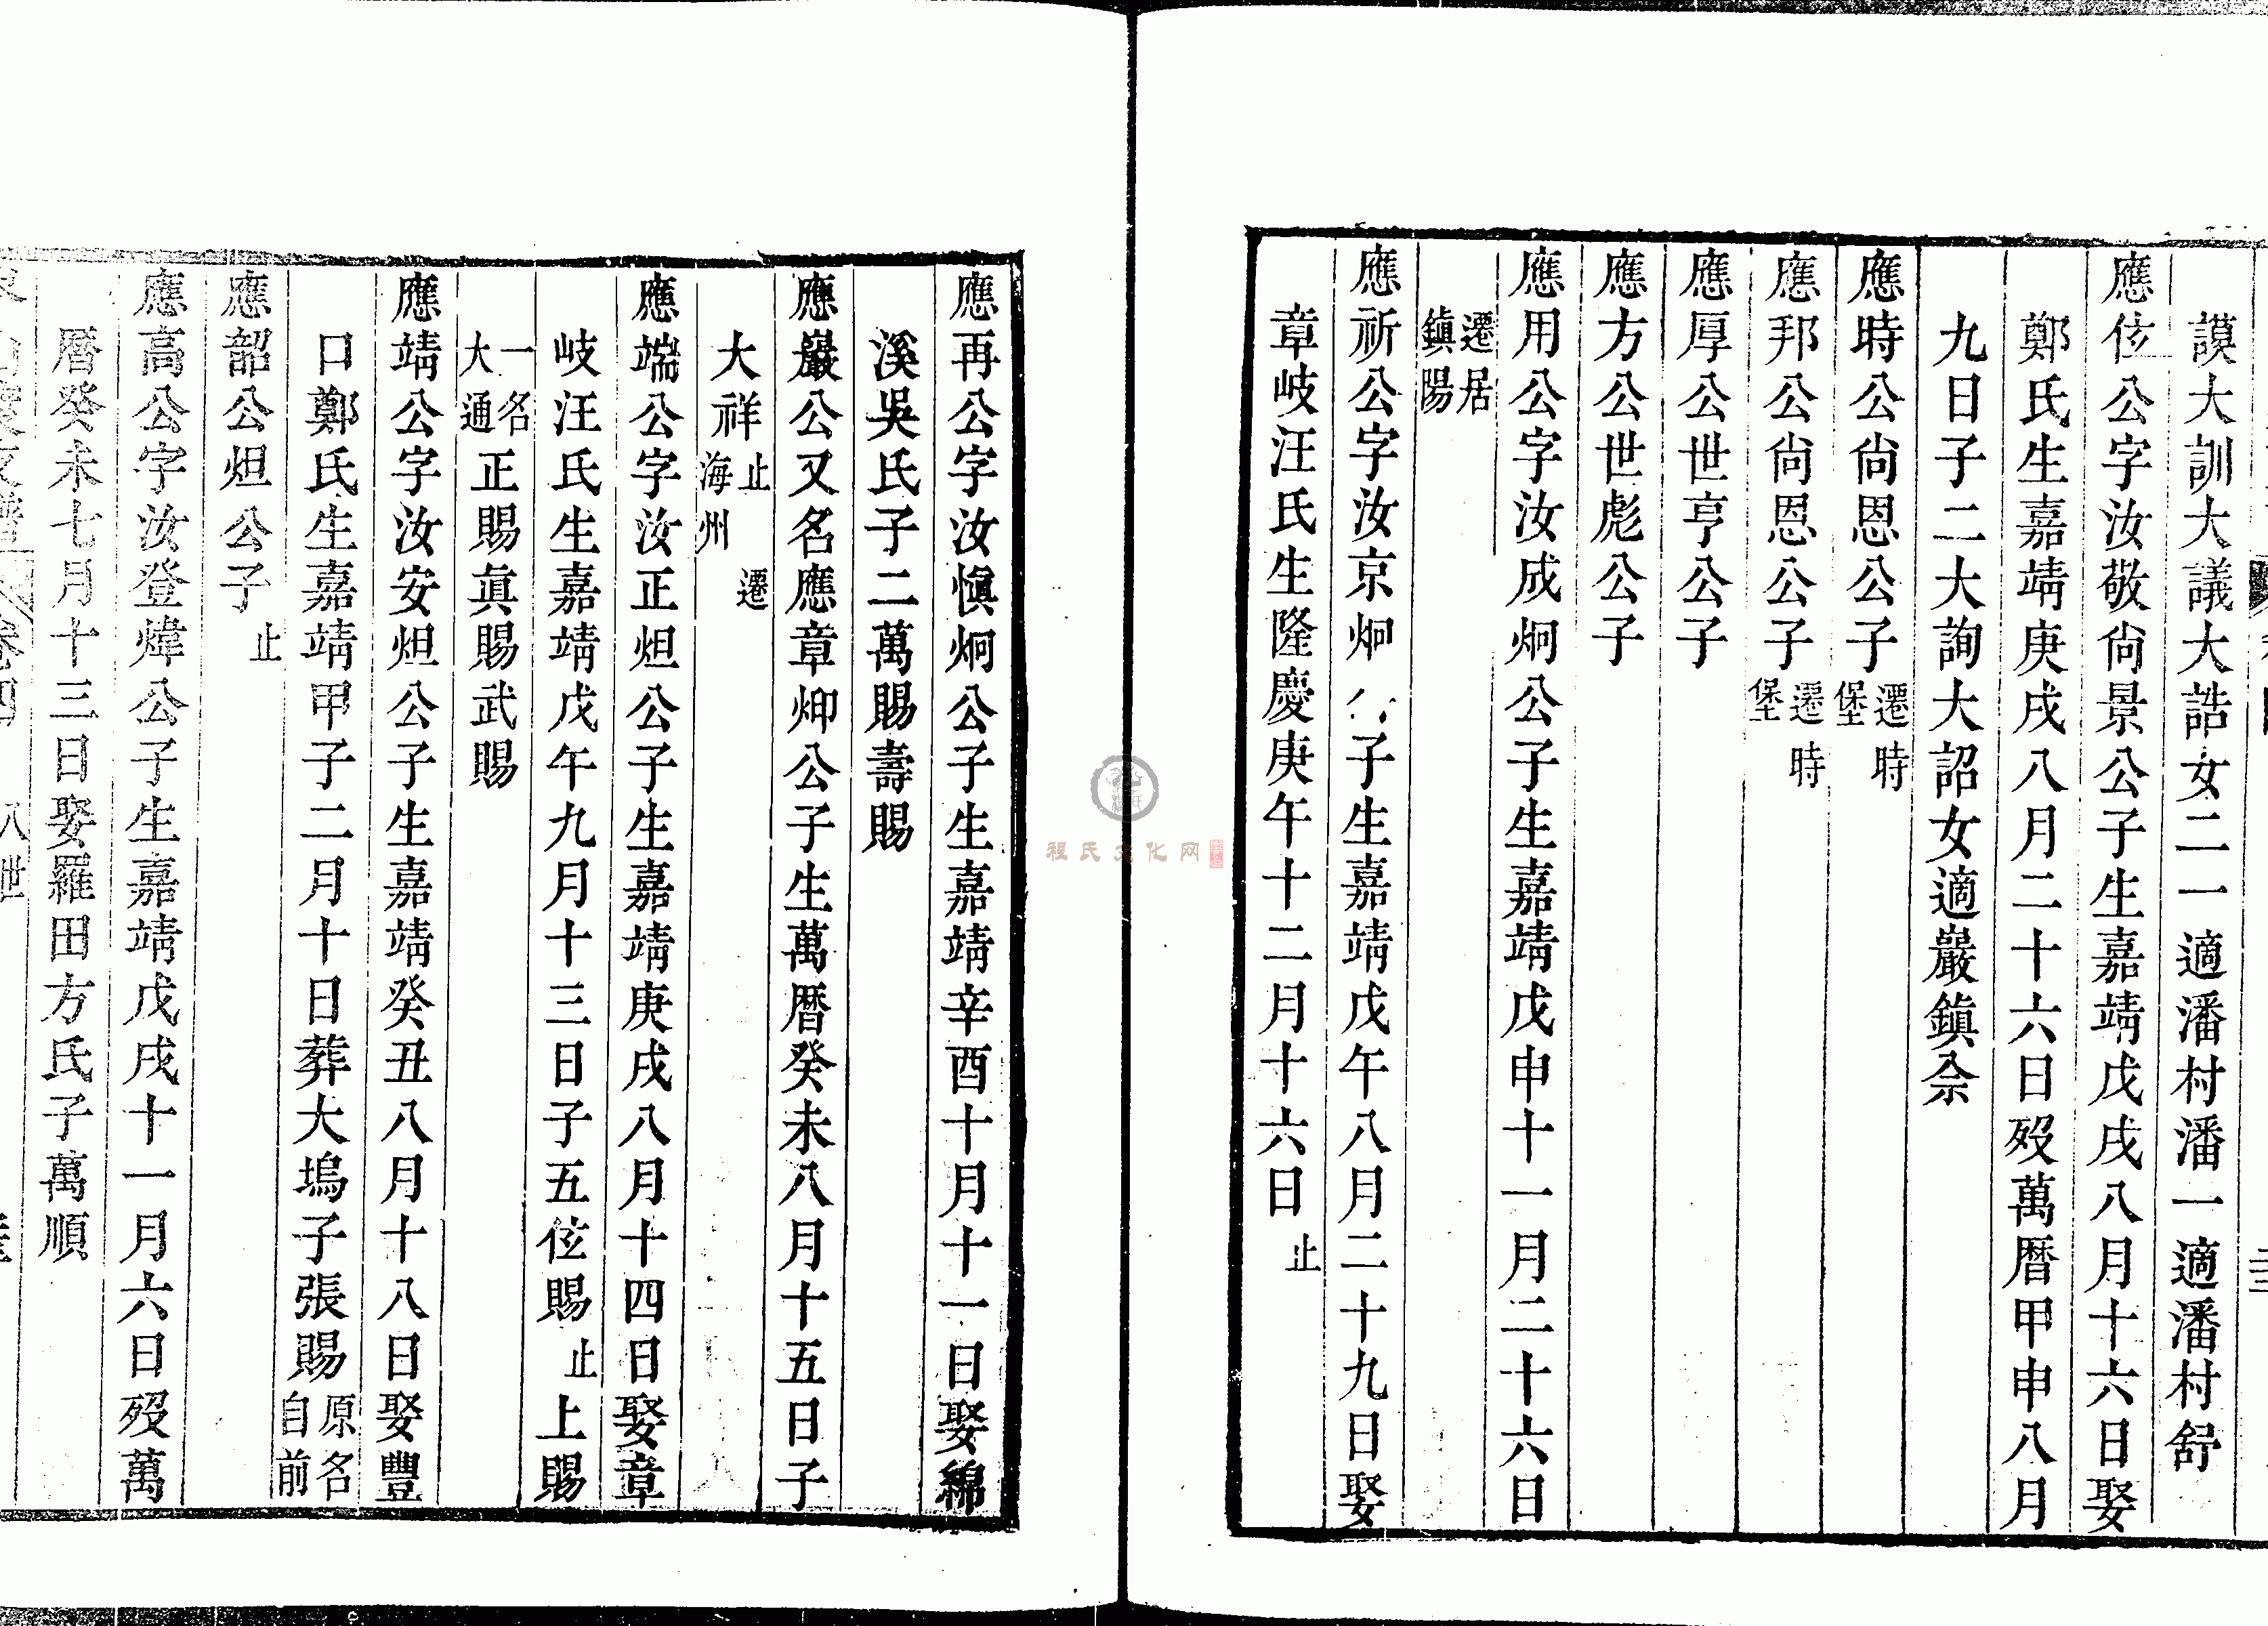 謨大訓大議大誥女二一適潘村潘一適潘村舒
應伭公字汝敬尙景公子生嘉靖戊戌八月十六日娶
鄭氏生嘉靖庚戌八月二十六日歿萬曆甲申八月
九日子二大詢大詔女適巖鎮佘
應時公尙恩公子遷時堡
應邦公尙恩公子遷時堡
應厚公世亨公子
應方公世彪公子
應用公字汝成炯公子生嘉靖戊申十一月二十六日
遷居鎮陽
應祈公字汝京炯 子生嘉靖戊午八月二十九日娶
章岐汪氏生隆慶庚午十二月十六日止
應再公字汝愼炯公子生嘉靖辛酉十月十一日娶綿
溪吳氏子二萬賜壽賜
應巖公又名應章𤇃公子生萬曆癸未八月十五日子
大祥止遷海州
應端公字汝正炟公子生嘉靖庚戌八月十四日娶章
岐汪氏生嘉靖戊午九月十三日子五伭賜止上賜
一名大通正賜眞賜武賜
應靖公字汝安炟公子生嘉靖癸丑八月十八日娶豐
口鄭氏生嘉靖甲子二月十日葬大塢子張賜原名自前
應韶公炟公子止
應高公字汝登煒公子生嘉靖戊戌十一月六日歿萬
曆癸未七月十三日娶羅田方氏子萬順
卷四 八世
程氏文化网